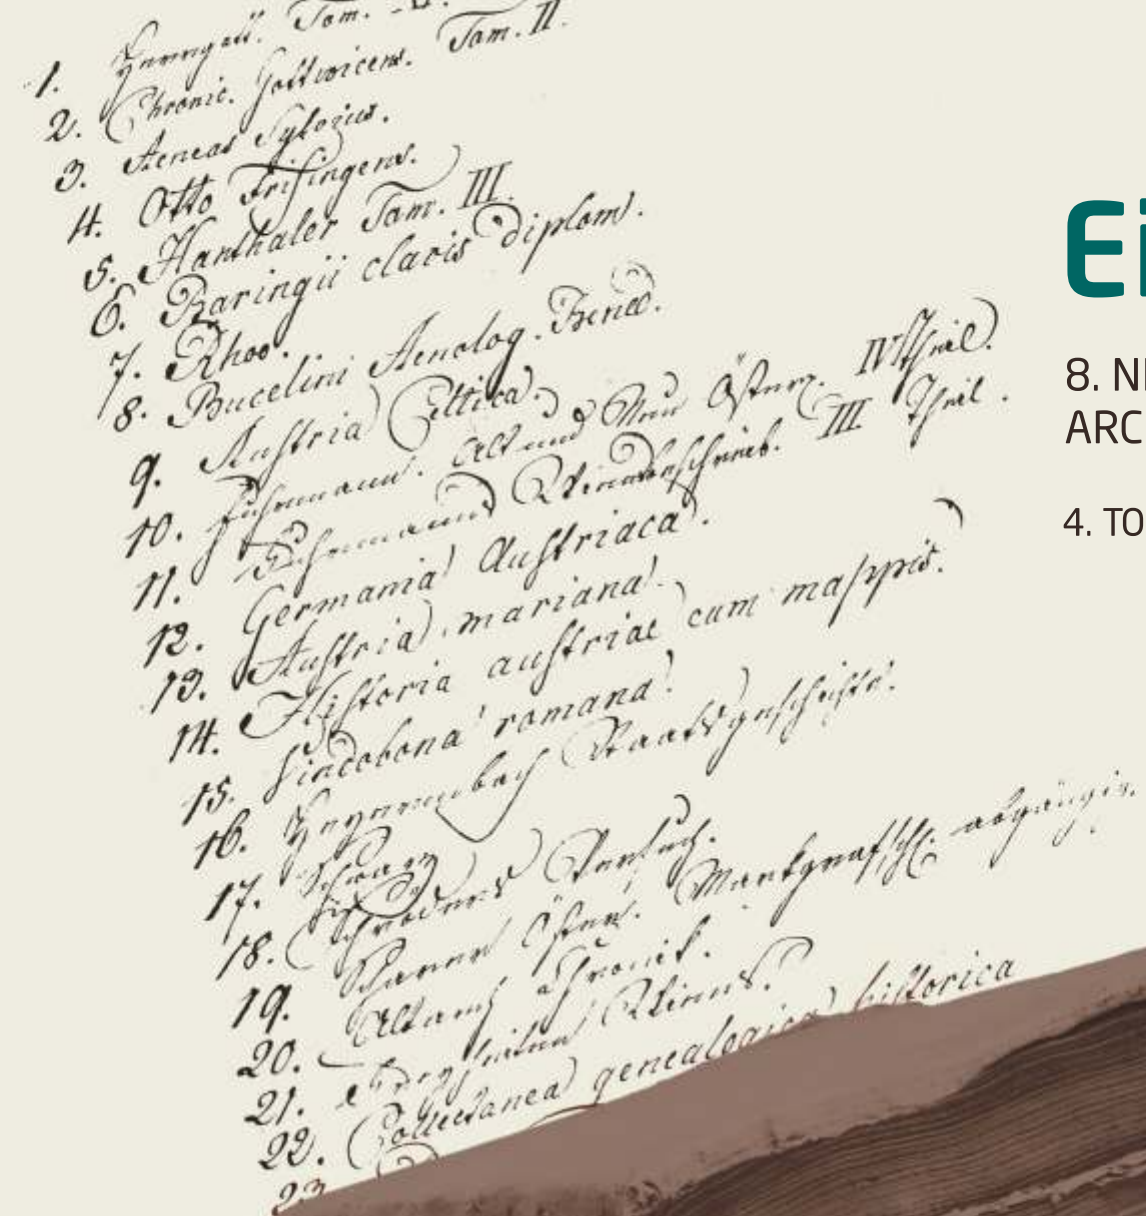 1. Tom. II.
2. Chronic. Gottwicens. Tom. II.
3. Aeneas Sylvius.
4. Otto Frisingens.
5. Hanthaler Tom. III.
6. Baringii clavis diplom.
7. Rhoo.
8. Bucelini Aenolog. Bened.
9. Austria Celtica.
10. Fuhrmann. Alt und Neu Österr. IV Theil.
11. Fuhrmann Wienbeschreib. III Theil.
12. Germania Austriaca.
13. Austria mariana.
14. Historia austriae cum mappis.
15. Vindobona romana.
16. Staatsgeschichte.
17. Schwarz
18. Schröders Versuch.
19. Österr. Markgrafsch. abgängig.
20. Chronik.
21. Wiens.
22. Collectanea genealogica historica
23
Ei
8. N
ARC
4. TO